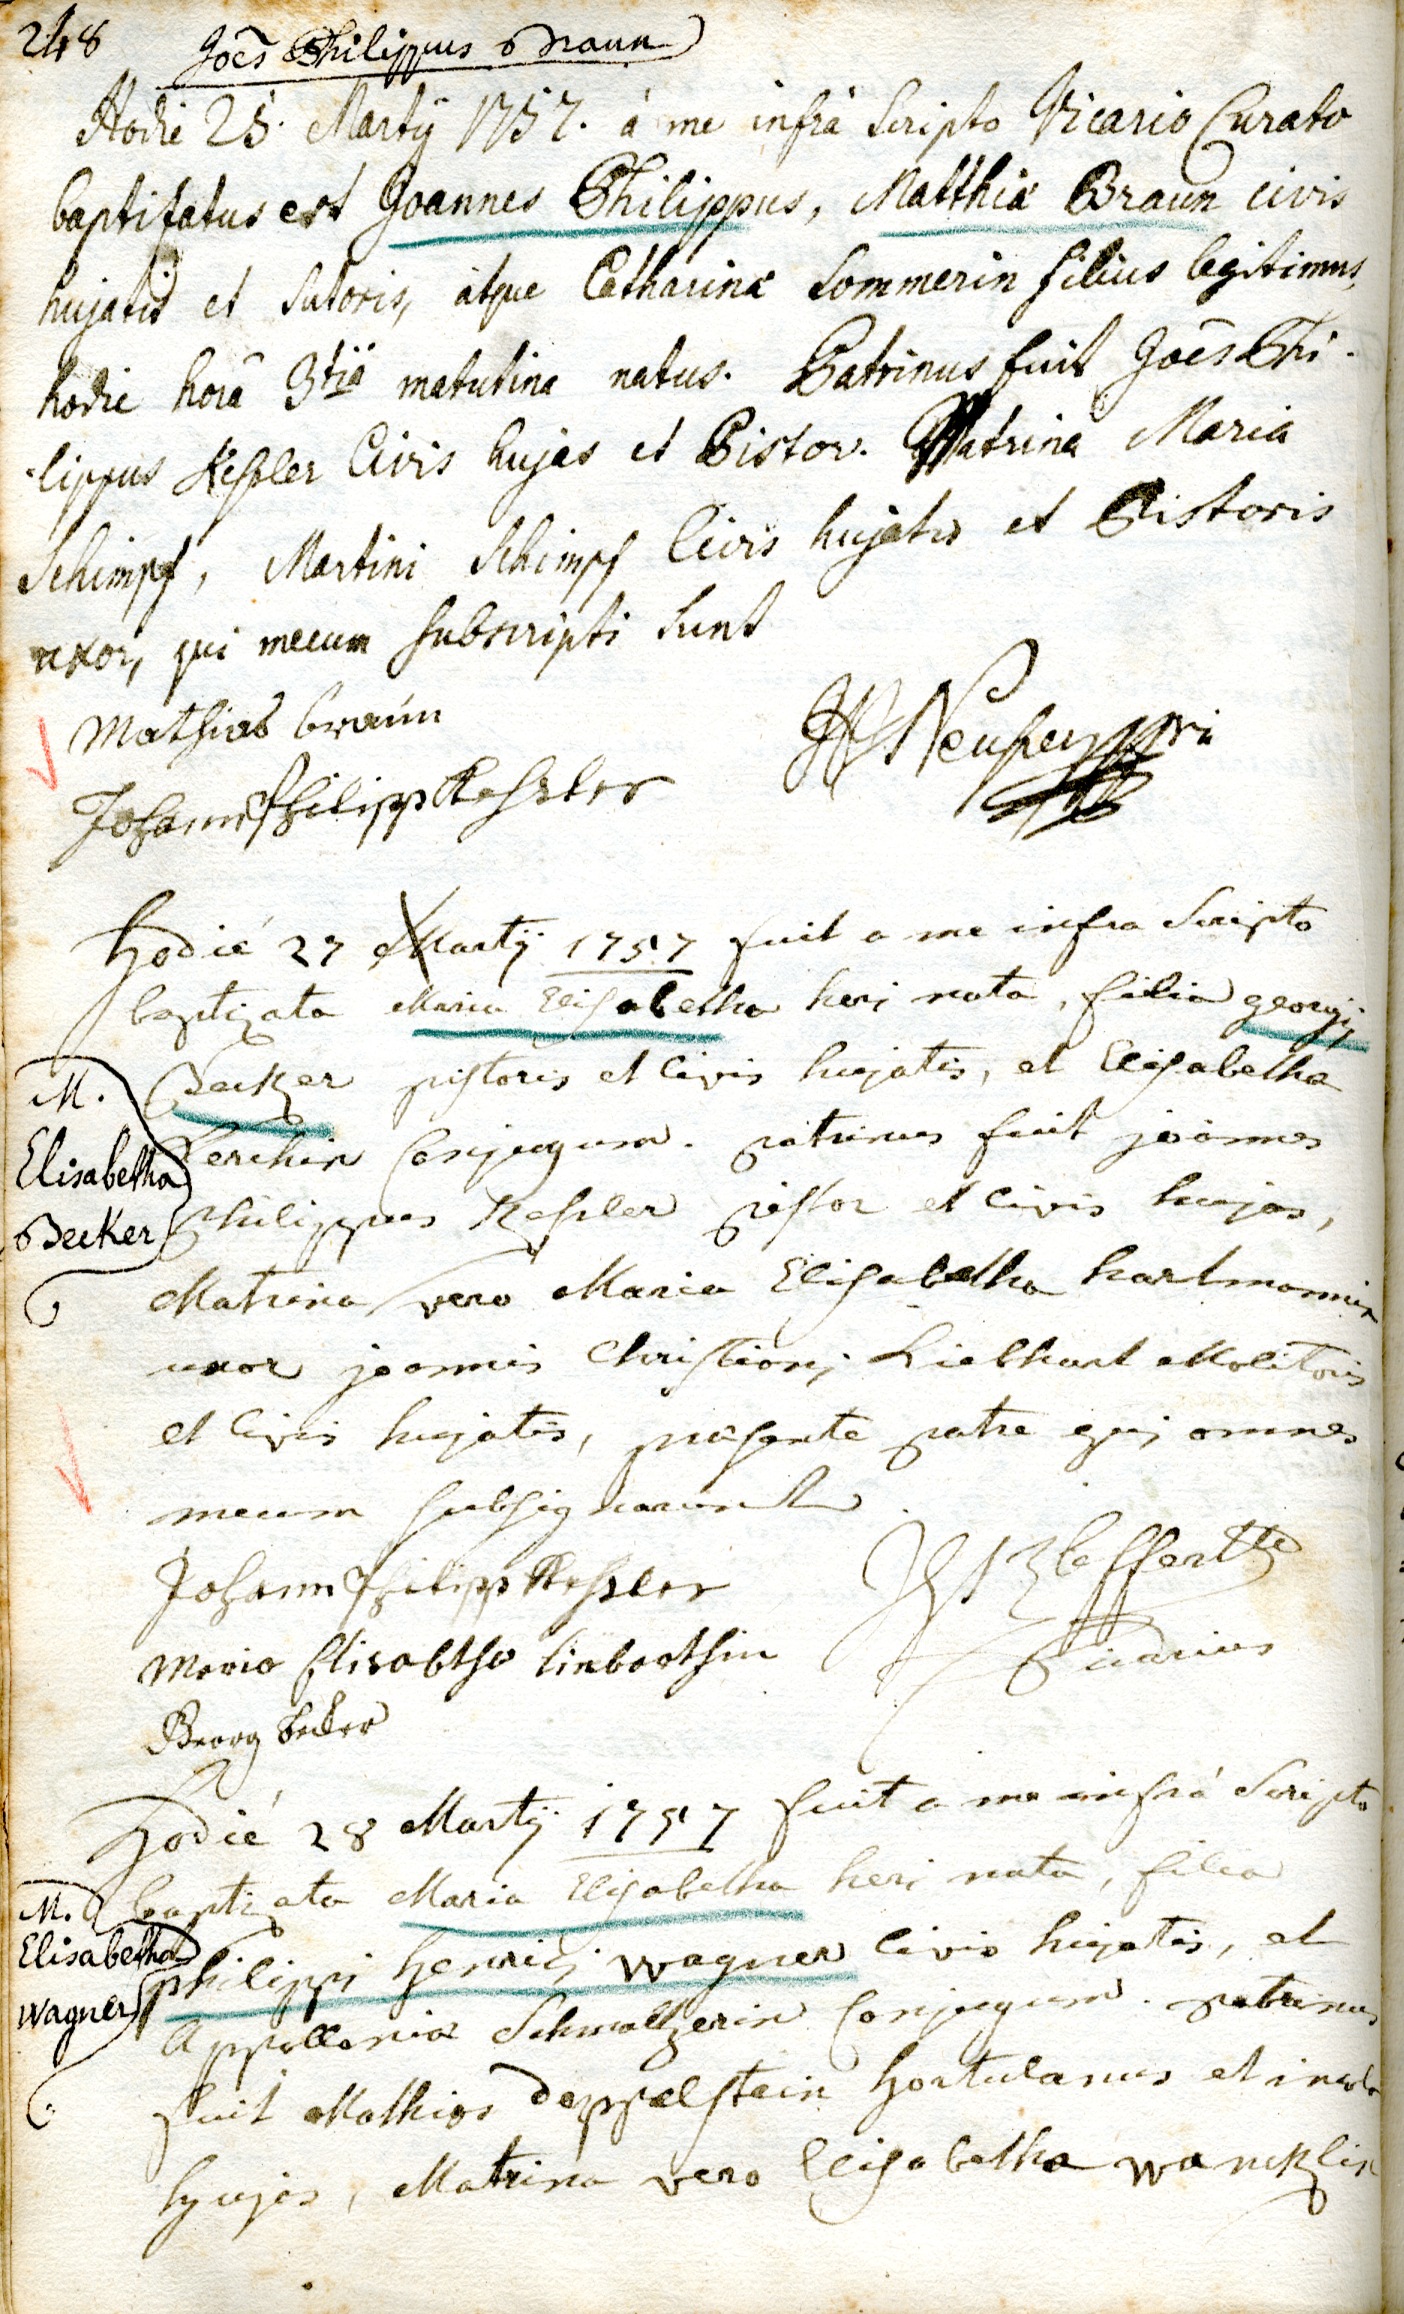 248 Joēs Philippus Braun
Hodie 25. Martÿ 1757. á me infrà Scripto Vicario Curato
baptisatus est Joannes Philippus, Matthiæ Braun civis
hujatis et sutoris, atque Catharinæ Sommerin filius legitimus,
hodie horā 3tiâ matutina natus. Patrinus fuit Joēs Phi-
-lippus Kessler Civis hujas et Pistor. Matrina Maria
Schimpf, Martini Schimpf Civis hujatis et Pistoris
uxor, qui mecum subscripti sunt
Mathias braun
Johann Philipp Kessler
Hodié 27 Martÿ 1757 fuit a me infra Scripto
baptizata Maria Elisabetha heri nata, filia georgij
Becker pistoris et Civis hujatis, et Elisabetha
M.
Elisabetha
Becker
Lerchin Conjugum. patrinus fuit joannes
Philippus Kessler pistor et Civis hujas,
Matrina vero Maria Elisabetha hartmannin
uxor joannis Christianj Liebhart Molitoris
et Civis hujatis, præsente patre qui omnes
mecum subsignarunt.
Johann Philipp Kessler
Vicarius
Maria Elisabetha
Georg becker
Hodié 28 Martÿ 1757 fuit a me infrá Scripto
baptizata Maria Elisabetha heri nata, filia
M.
Elisabetha
Wagner
philippi henrici wagner Civis hujatis, et
Appollonia Schmaltzerin Conjugum. patrinus
fuit Mathias Deppelstein hortulanus et incola
hujas, Matrina vero Elisabetha wancklin